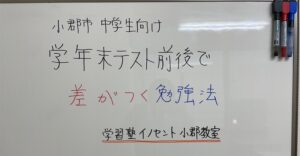 小郡市 中学生向け
学年末テスト前後で
差がつく勉強法
学習塾イノセント小郡教室